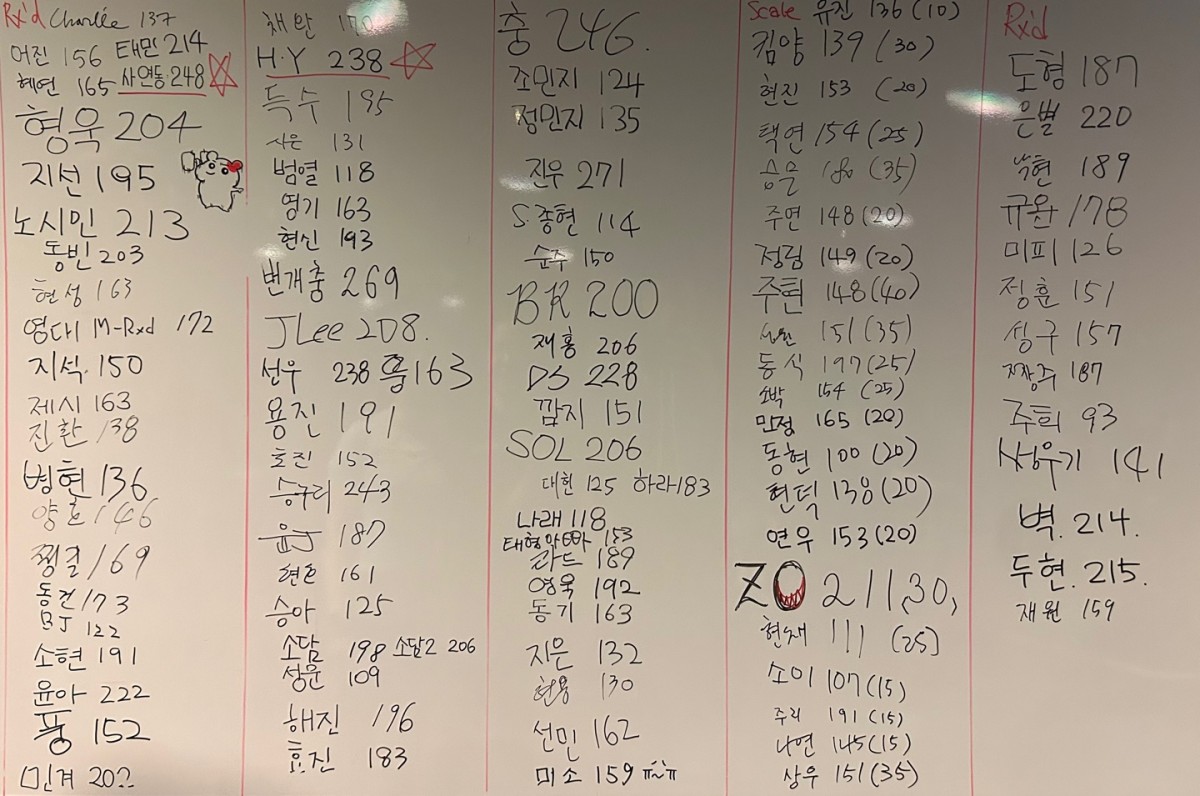 Rx'd Charlee 137
어진 156 태민 214
혜연 165 사연동 248
형욱 204
지선 195
노시민 213
동빈 203
현성 163
영대 M-Rxd 172
지석 150
제시 163
진환 138
병현 136
양호 146
찡결 169
동건 173
BJ 122
소현 191
윤아 222
풍 152
민겨 202
채완
H.Y 238
득수 195
사은 131
범열 118
영기 163
현신 193
번개충 269
JLee 208.
선우 238 흠 163
용진 191
효진 152
승구리 243
윤J 187
현호 161
승아 125
소담 198 소담2 206
성문 109
해진 196
효진 183
충 246.
조민지 124
정민지 135
진우 271
S.종현 114
순주 150
BR 200
재홍 206
DS 228
깜지 151
SOL 206
대헌 125 하라 183
나래 118
태형 153
라드 189
영욱 192
동기 163
지은 132
현용 130
선민 162
미소 159 ㅠㅠ
Scale 유진 136 (10)
김양 139 (30)
현진 153 (20)
택연 154 (25)
승문 180 (35)
주연 148 (20)
정림 149 (20)
주현 148 (40)
151 (35)
동식 197 (25)
소박 154 (25)
민정 165 (20)
동현 100 (20)
현덕 138 (20)
연우 153 (20)
ZO 211,30,
현재 111 (25)
소이 107 (15)
주리 191 (15)
나연 145 (15)
상우 151 (35)
Rx'd
도형 187
은별 220
낙현 189
규완 178
미피 126
정훈 151
성구 157
짱주 187
주희 93
성우기 141
벽. 214.
두현. 215.
재원 159